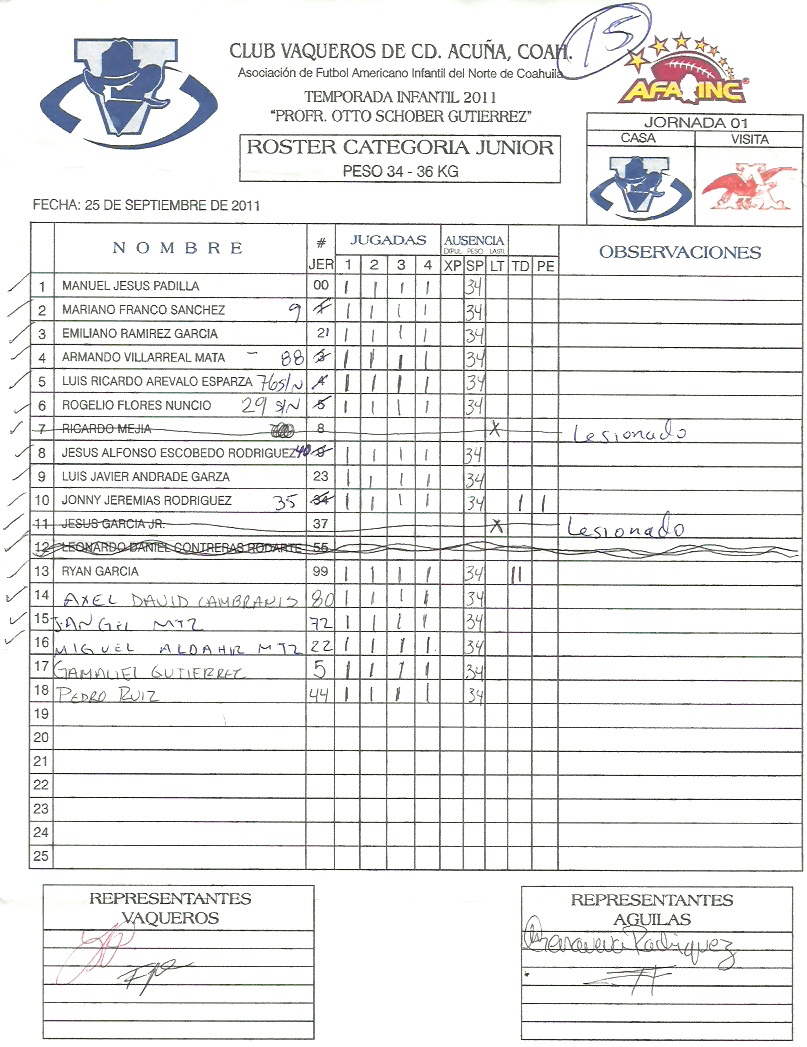 CLUB VAQUEROS DE CD. ACUÑA, COAH.
15
Asociación de Futbol Americano Infantil del Norte de Coahuila
AFAINC
TEMPORADA INFANTIL 2011
"PROFR. OTTO SCHOBER GUTIERREZ"
ROSTER CATEGORIA JUNIOR
PESO 34 - 36 KG
JORNADA 01
CASA VISITA
FECHA: 25 DE SEPTIEMBRE DE 2011
NOMBRE # JER JUGADAS 1 2 3 4 AUSENCIA EXPUL PESO LAST. XP SP LT TD PE OBSERVACIONES
1 MANUEL JESUS PADILLA 00 | | | | 34
2 MARIANO FRANCO SANCHEZ 9 | | | | 34
3 EMILIANO RAMIREZ GARCIA 21 | | | | 34
4 ARMANDO VILLARREAL MATA - 88 3 | | | | 34
5 LUIS RICARDO AREVALO ESPARZA 76 S/N 4 | | | | 34
6 ROGELIO FLORES NUNCIO 29 S/N 5 | | | | 34
7 RICARDO MEJIA 8 X Lesionado
8 JESUS ALFONSO ESCOBEDO RODRIGUEZ 40 | | | | 34
9 LUIS JAVIER ANDRADE GARZA 23 | | | | 34
10 JONNY JEREMIAS RODRIGUEZ 35 34 | | | | 34 | |
11 JESUS GARCIA JR. 37 X Lesionado
12 LEONARDO DANIEL CONTRERAS RODARTE 55
13 RYAN GARCIA 99 | | | | 34 ||
14 AXEL DAVID CAMBRANIS 80 | | | | 34
15 ANGEL MTZ 72 | | | | 34
16 MIGUEL ALDAHIR MTZ 22 | | | | 34
17 GAMALIEL GUTIERREZ 5 | | | | 34
18 PEDRO RUIZ 44 | | | | 34
19
20
21
22
23
24
25
REPRESENTANTES
VAQUEROS
REPRESENTANTES
AGUILAS
Rodriguez